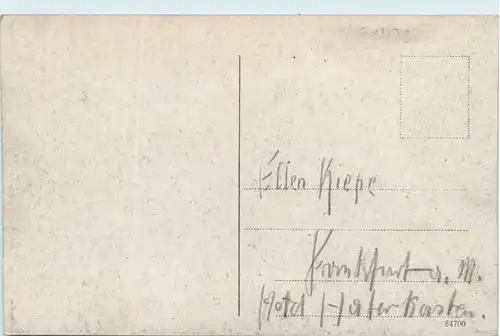 Ellen Kiepe
Frankfurt a. M.
Hotel Haferkasten.
64700